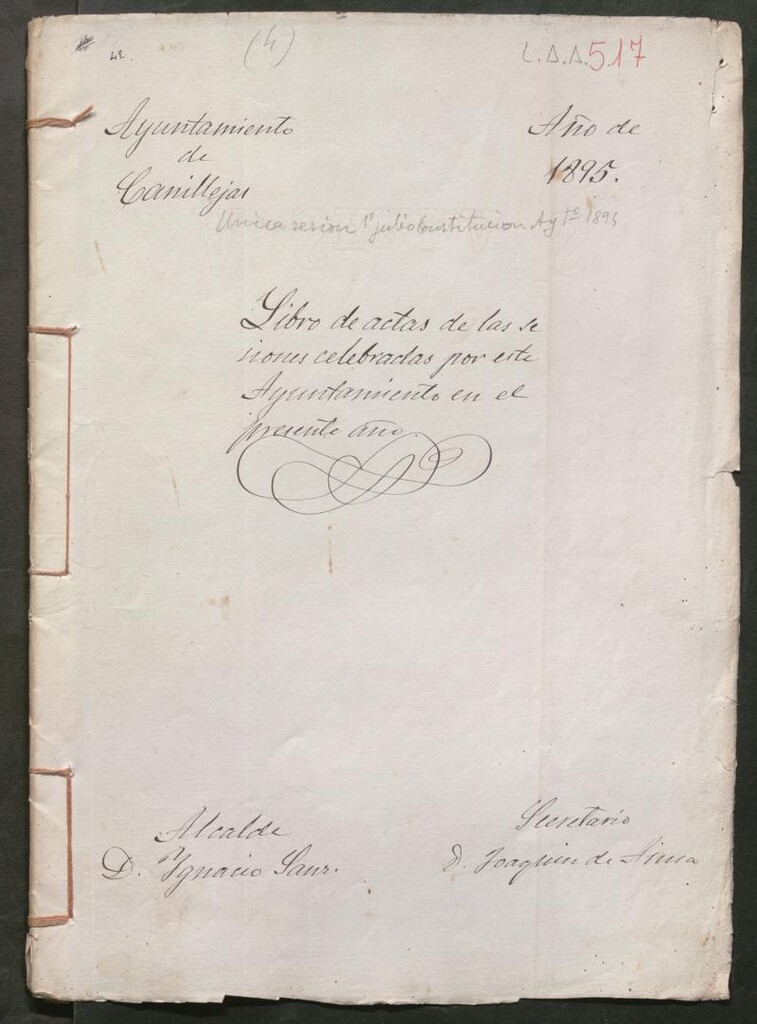 42.
(4)
L.A.A. 517
Ayuntamiento
de
Canillejas
Año de
1895.
Unica sesion 1º julio Constitucion Ayto 1895
Libro de actas de las se
siones celebradas por este
Ayuntamiento en el
presente año.
Alcalde
D. Ygnacio Sanz.
Secretario
D. Joaquin de